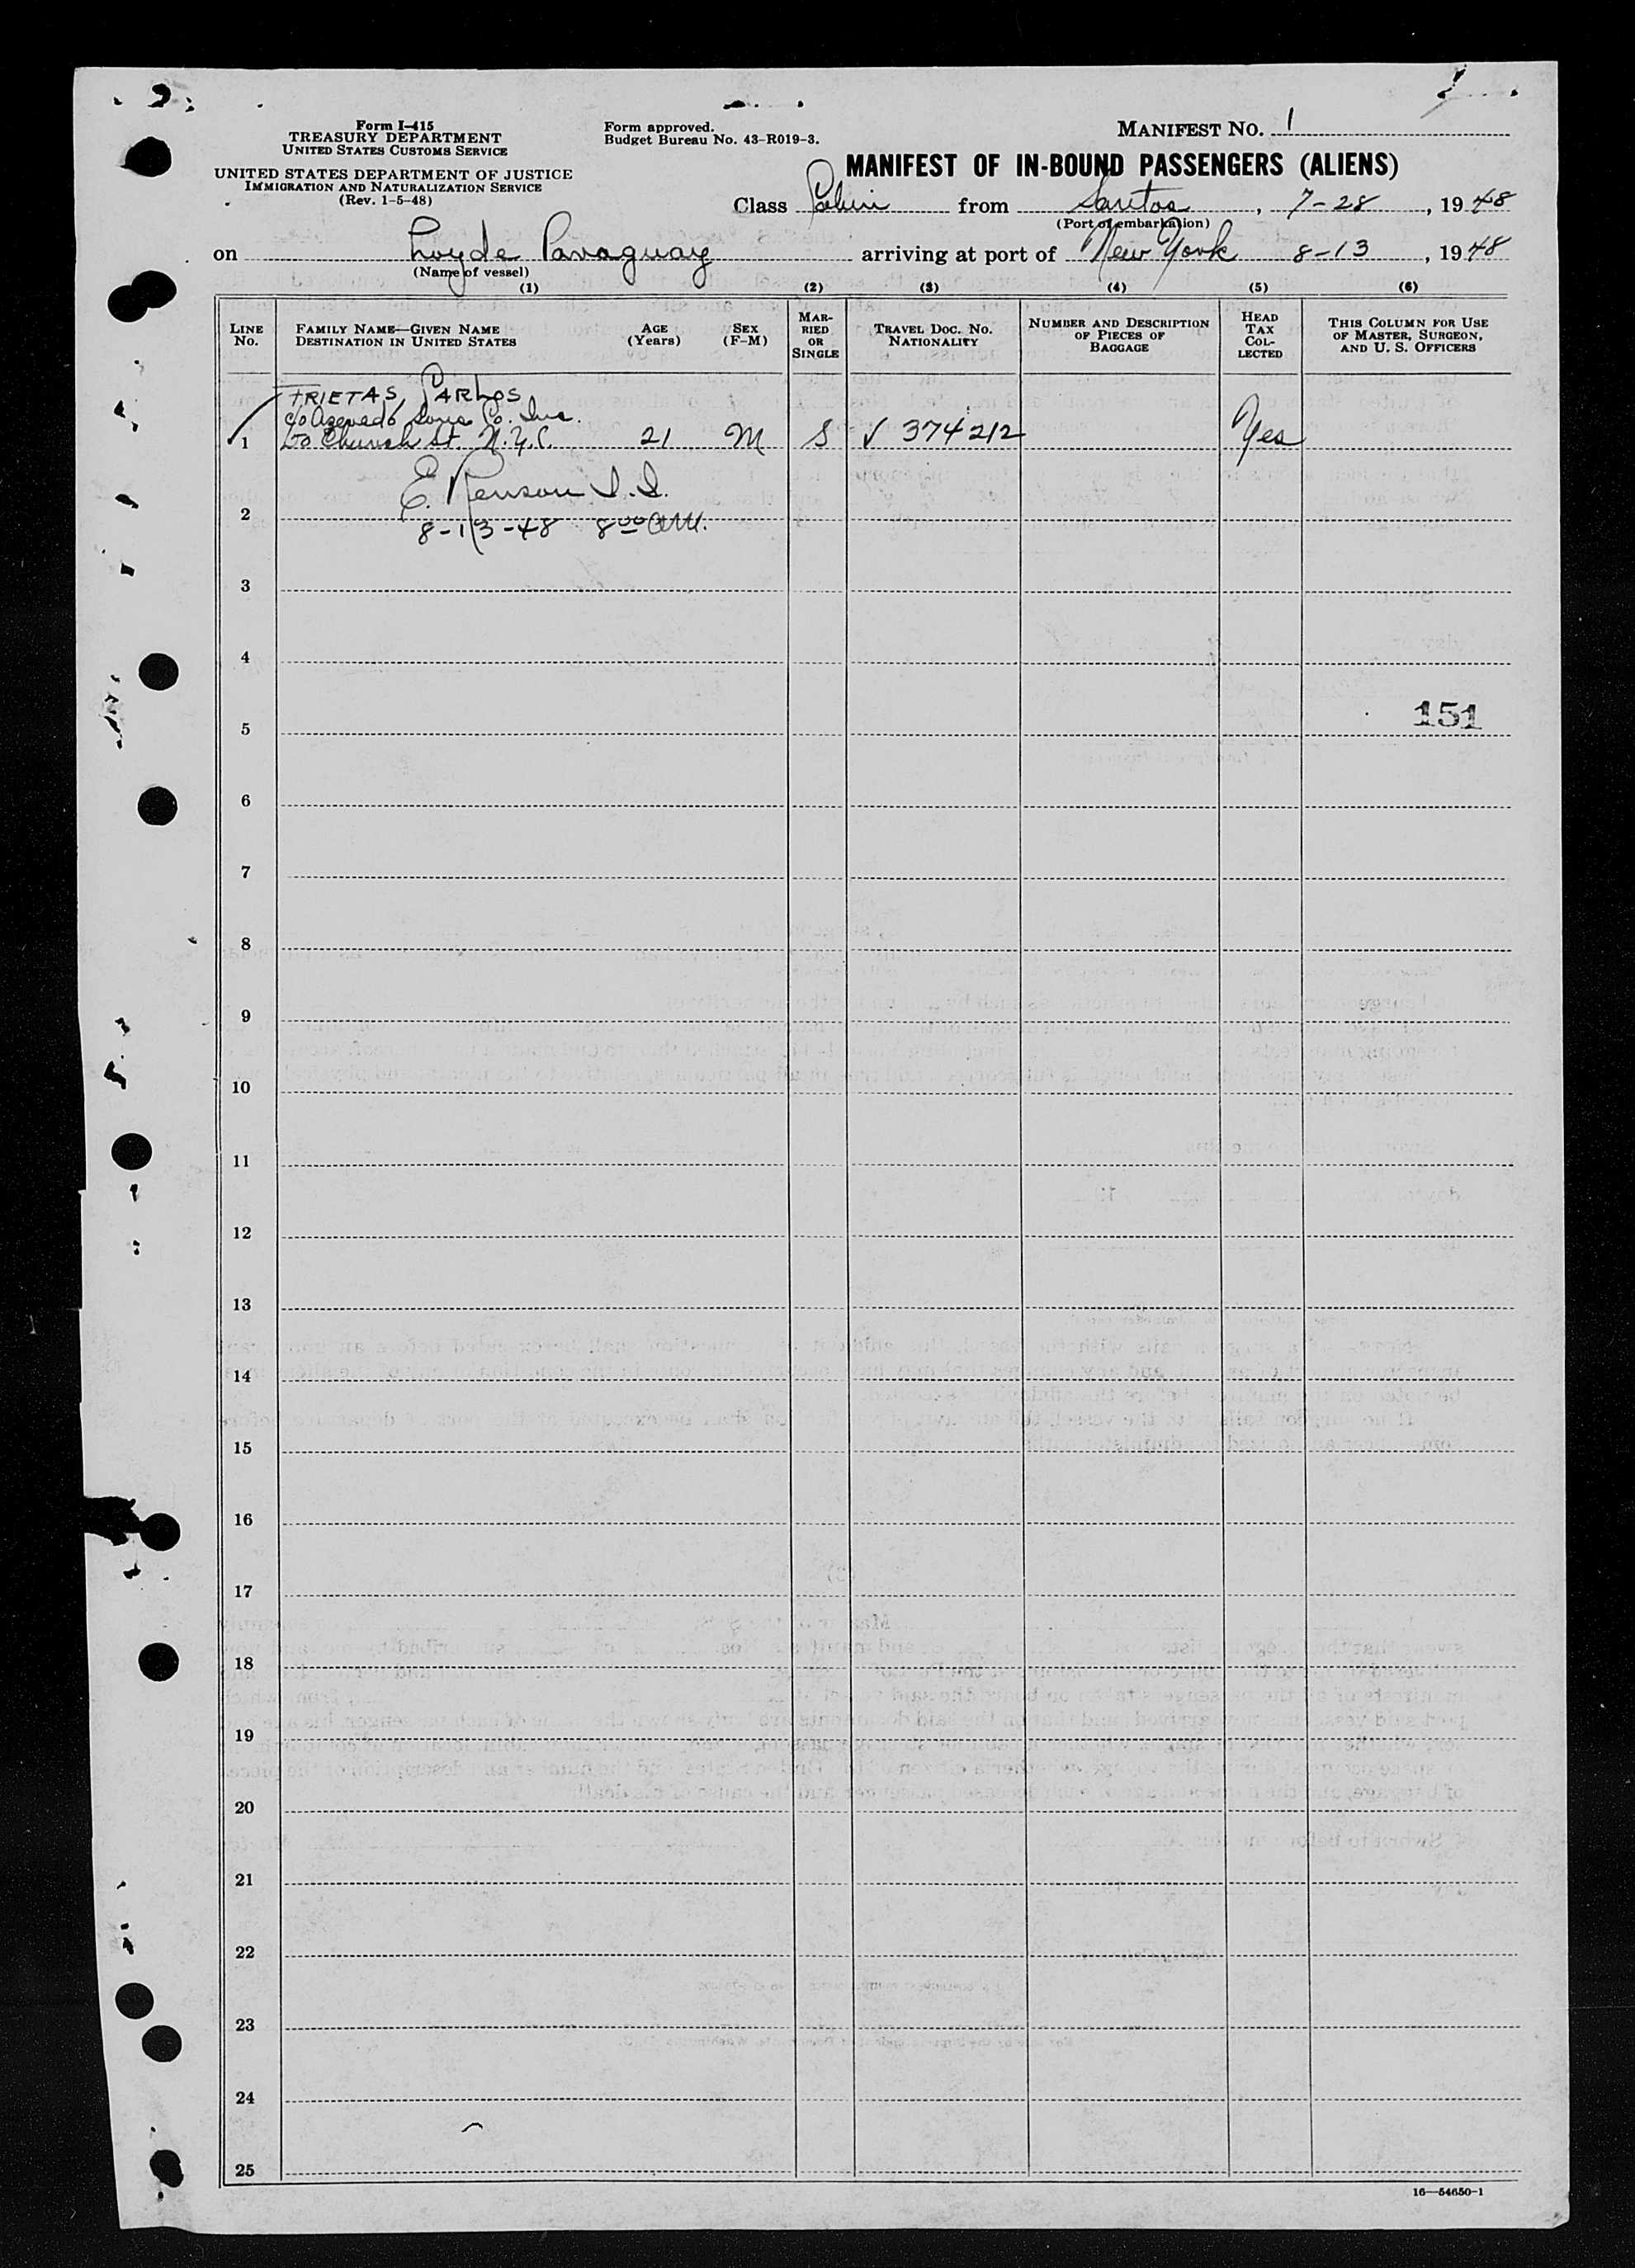 Form I-415
TREASURY DEPARTMENT
UNITED STATES CUSTOMS SERVICE
UNITED STATES DEPARTMENT OF JUSTICE
IMMIGRATION AND NATURALIZATION SERVICE
(Rev. 1-5-48)
Form approved.
Budget Bureau No. 43-R019-3.
MANIFEST NO. 1
MANIFEST OF IN-BOUND PASSENGERS (ALIENS)
Class Cabin from Santos, 7-28, 1948
(Port of embarkation)
on Loyde Paraguay arriving at port of New York 8-13, 1948
(Name of vessel)
(1) (2) (3) (4) (5) (6)
LINE NO. FAMILY NAME—GIVEN NAME DESTINATION IN UNITED STATES AGE (Years) SEX (F-M) MARRIED OR SINGLE TRAVEL DOC. NO. NATIONALITY NUMBER AND DESCRIPTION OF PIECES OF BAGGAGE HEAD TAX COLLECTED THIS COLUMN FOR USE OF MASTER, SURGEON, AND U. S. OFFICERS
FRIETAS, CARLOS
c/o Azevedo Sons Co. Inc.
1 Church St. N.Y.C. 21 M S √ 374212 Yes
E. Renson I.I.
2
8-13-48 8 00 AM.
3
4
151
5
6
7
8
9
10
11
12
13
14
15
16
17
18
19
20
21
22
23
24
25
16—54650-1